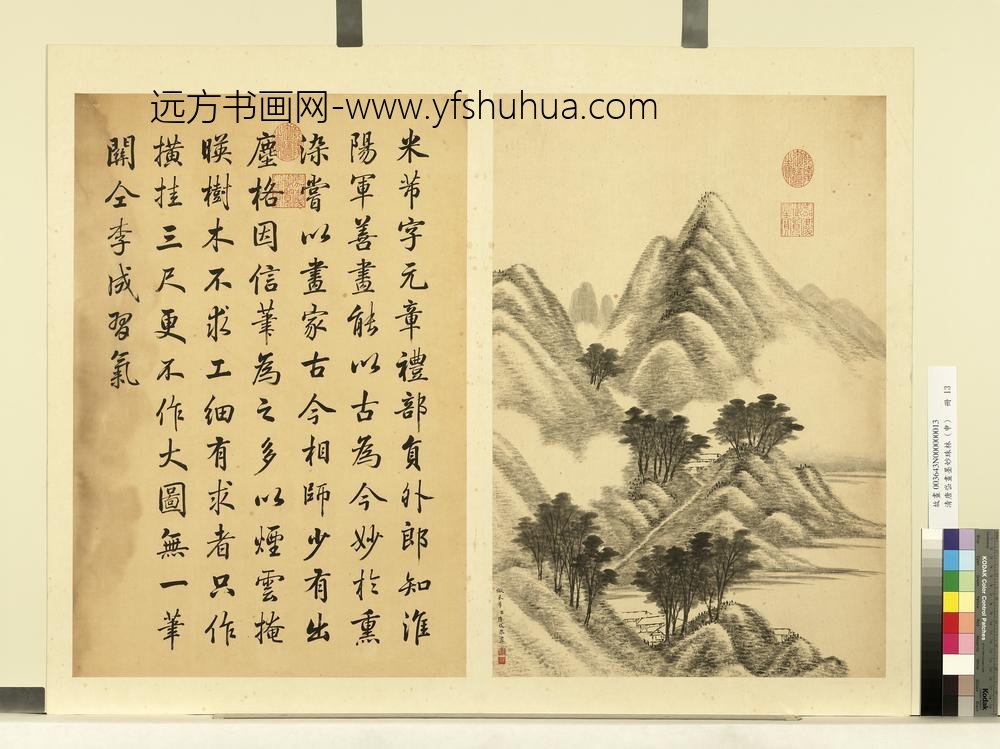 远方书画网-www.yfshuhua.com
米芾字元章禮部員外郎知淮
陽軍善畫能以古為今妙於熏
染嘗以畫家古今相師少有出
塵格因信筆為之多以煙雲掩
暎樹木不求工細有求者只作
橫挂三尺更不作大圖無一筆
關仝李成習氣
故畫 003643N000000013
清唐岱畫墨妙珠林(申) 冊 13
KODAK Color Control Patches
Kodak